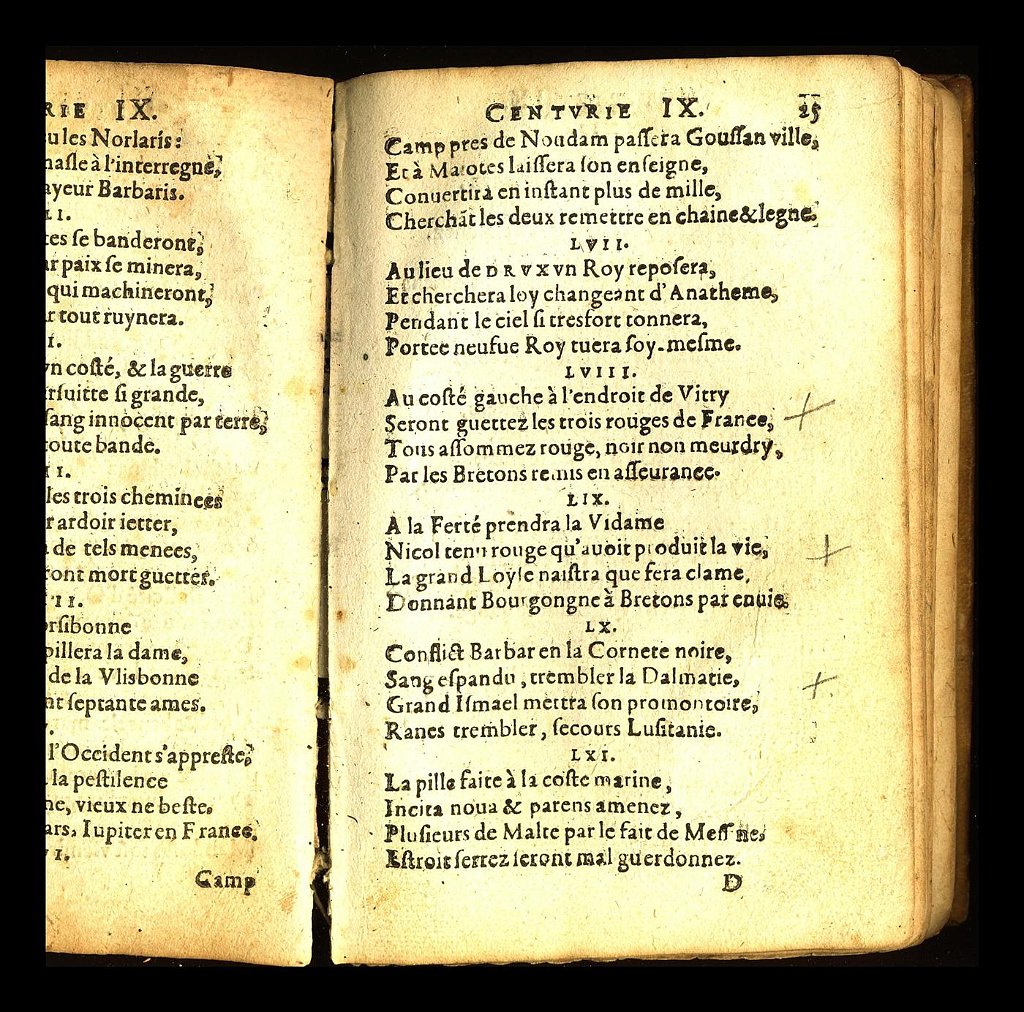 RIE IX.
u les Norlaris:
naſle à l'interregne,
ayeur Barbaris.
II.
tes ſe banderont,
ar paix ſe minera,
qui machineront,
r tout ruynera.
I.
vn coſté, & la guerre
rſuitte ſi grande,
ſang innocent par terre,
toute bande.
II.
les trois cheminees
r ardoir ietter,
de tels menees,
ront mort guetter.
II.
rſibonne
pillera la dame,
de la Vlisbonne
nt ſeptante ames.
l'Occident s'appreſte,
la peſtilence
ne, vieux ne beſte.
ars, Iupiter en France.
VI.
Camp
CENTVRIE IX. 25
Camp pres de Noudam paſſera Gouſſan ville,
Et à Maiotes laiſſera ſon enſeigne,
Conuertira en inſtant plus de mille,
Cherchãt les deux remettre en chaine & legne.
LVII.
Au lieu de DRVX vn Roy repoſera,
Et cherchera loy changeant d'Anatheme,
Pendant le ciel ſi tresfort tonnera,
Portee neufue Roy tuera ſoy-meſme.
LVIII.
Au coſté gauche à l'endroit de Vitry
Seront guettez les trois rouges de France,
Tous aſſommez rouge, noir non meurdry,
Par les Bretons remis en aſſeurance.
LIX.
A la Ferté prendra la Vidame
Nicol tenu rouge qu'auoit produit la vie,
La grand Loyſe naiſtra que fera clame,
Donnant Bourgongne à Bretons par enuie.
LX.
Conflict Barbar en la Cornete noire,
Sang eſpandu, trembler la Dalmatie,
Grand Iſmael mettra ſon promontoire,
Ranes trembler, ſecours Luſitanie.
LXI.
La pille faite à la coſte marine,
Incita noua & parens amenez,
Pluſieurs de Malte par le fait de Meſſine,
Eſtroit ſerrez ſeront mal guerdonnez.
D